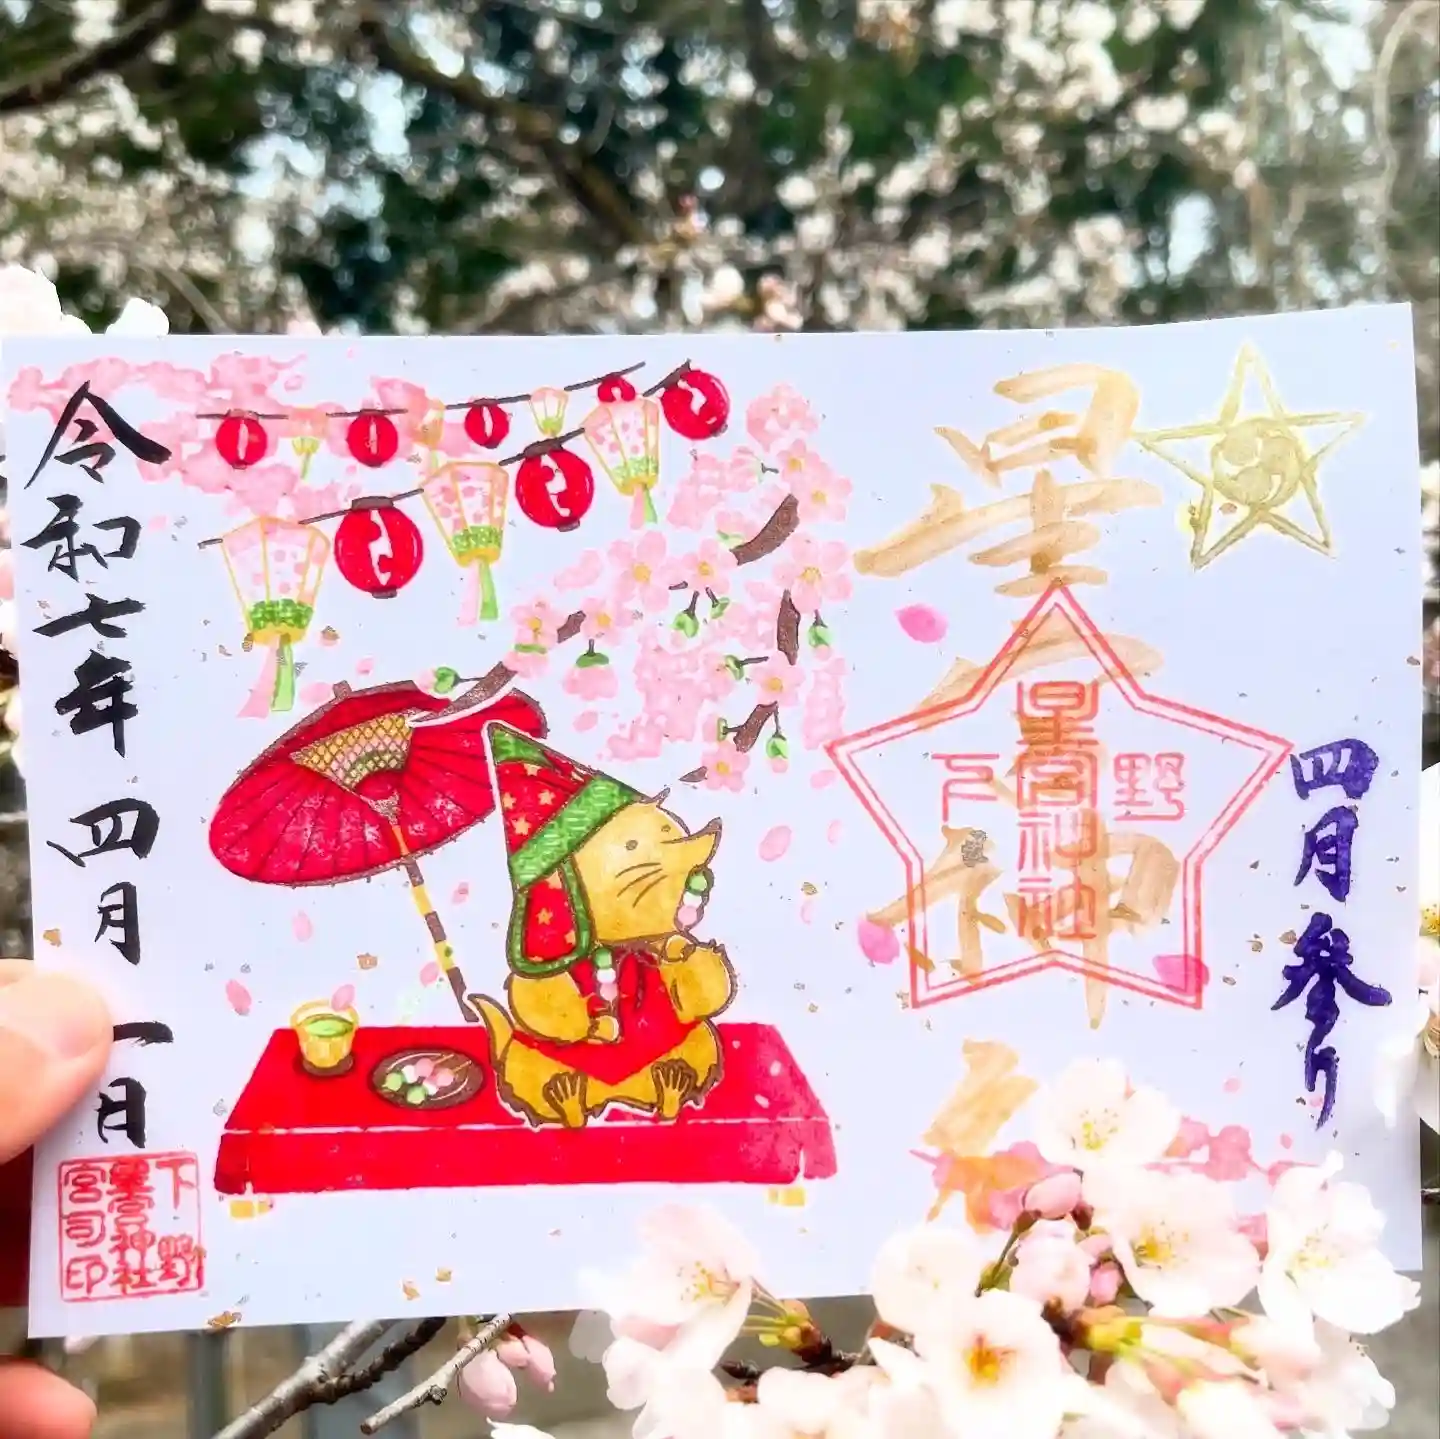 四月參り
星宮神社
下野
星宮神社
令和七年 四月 一日
下野
星宮神社
宮司印